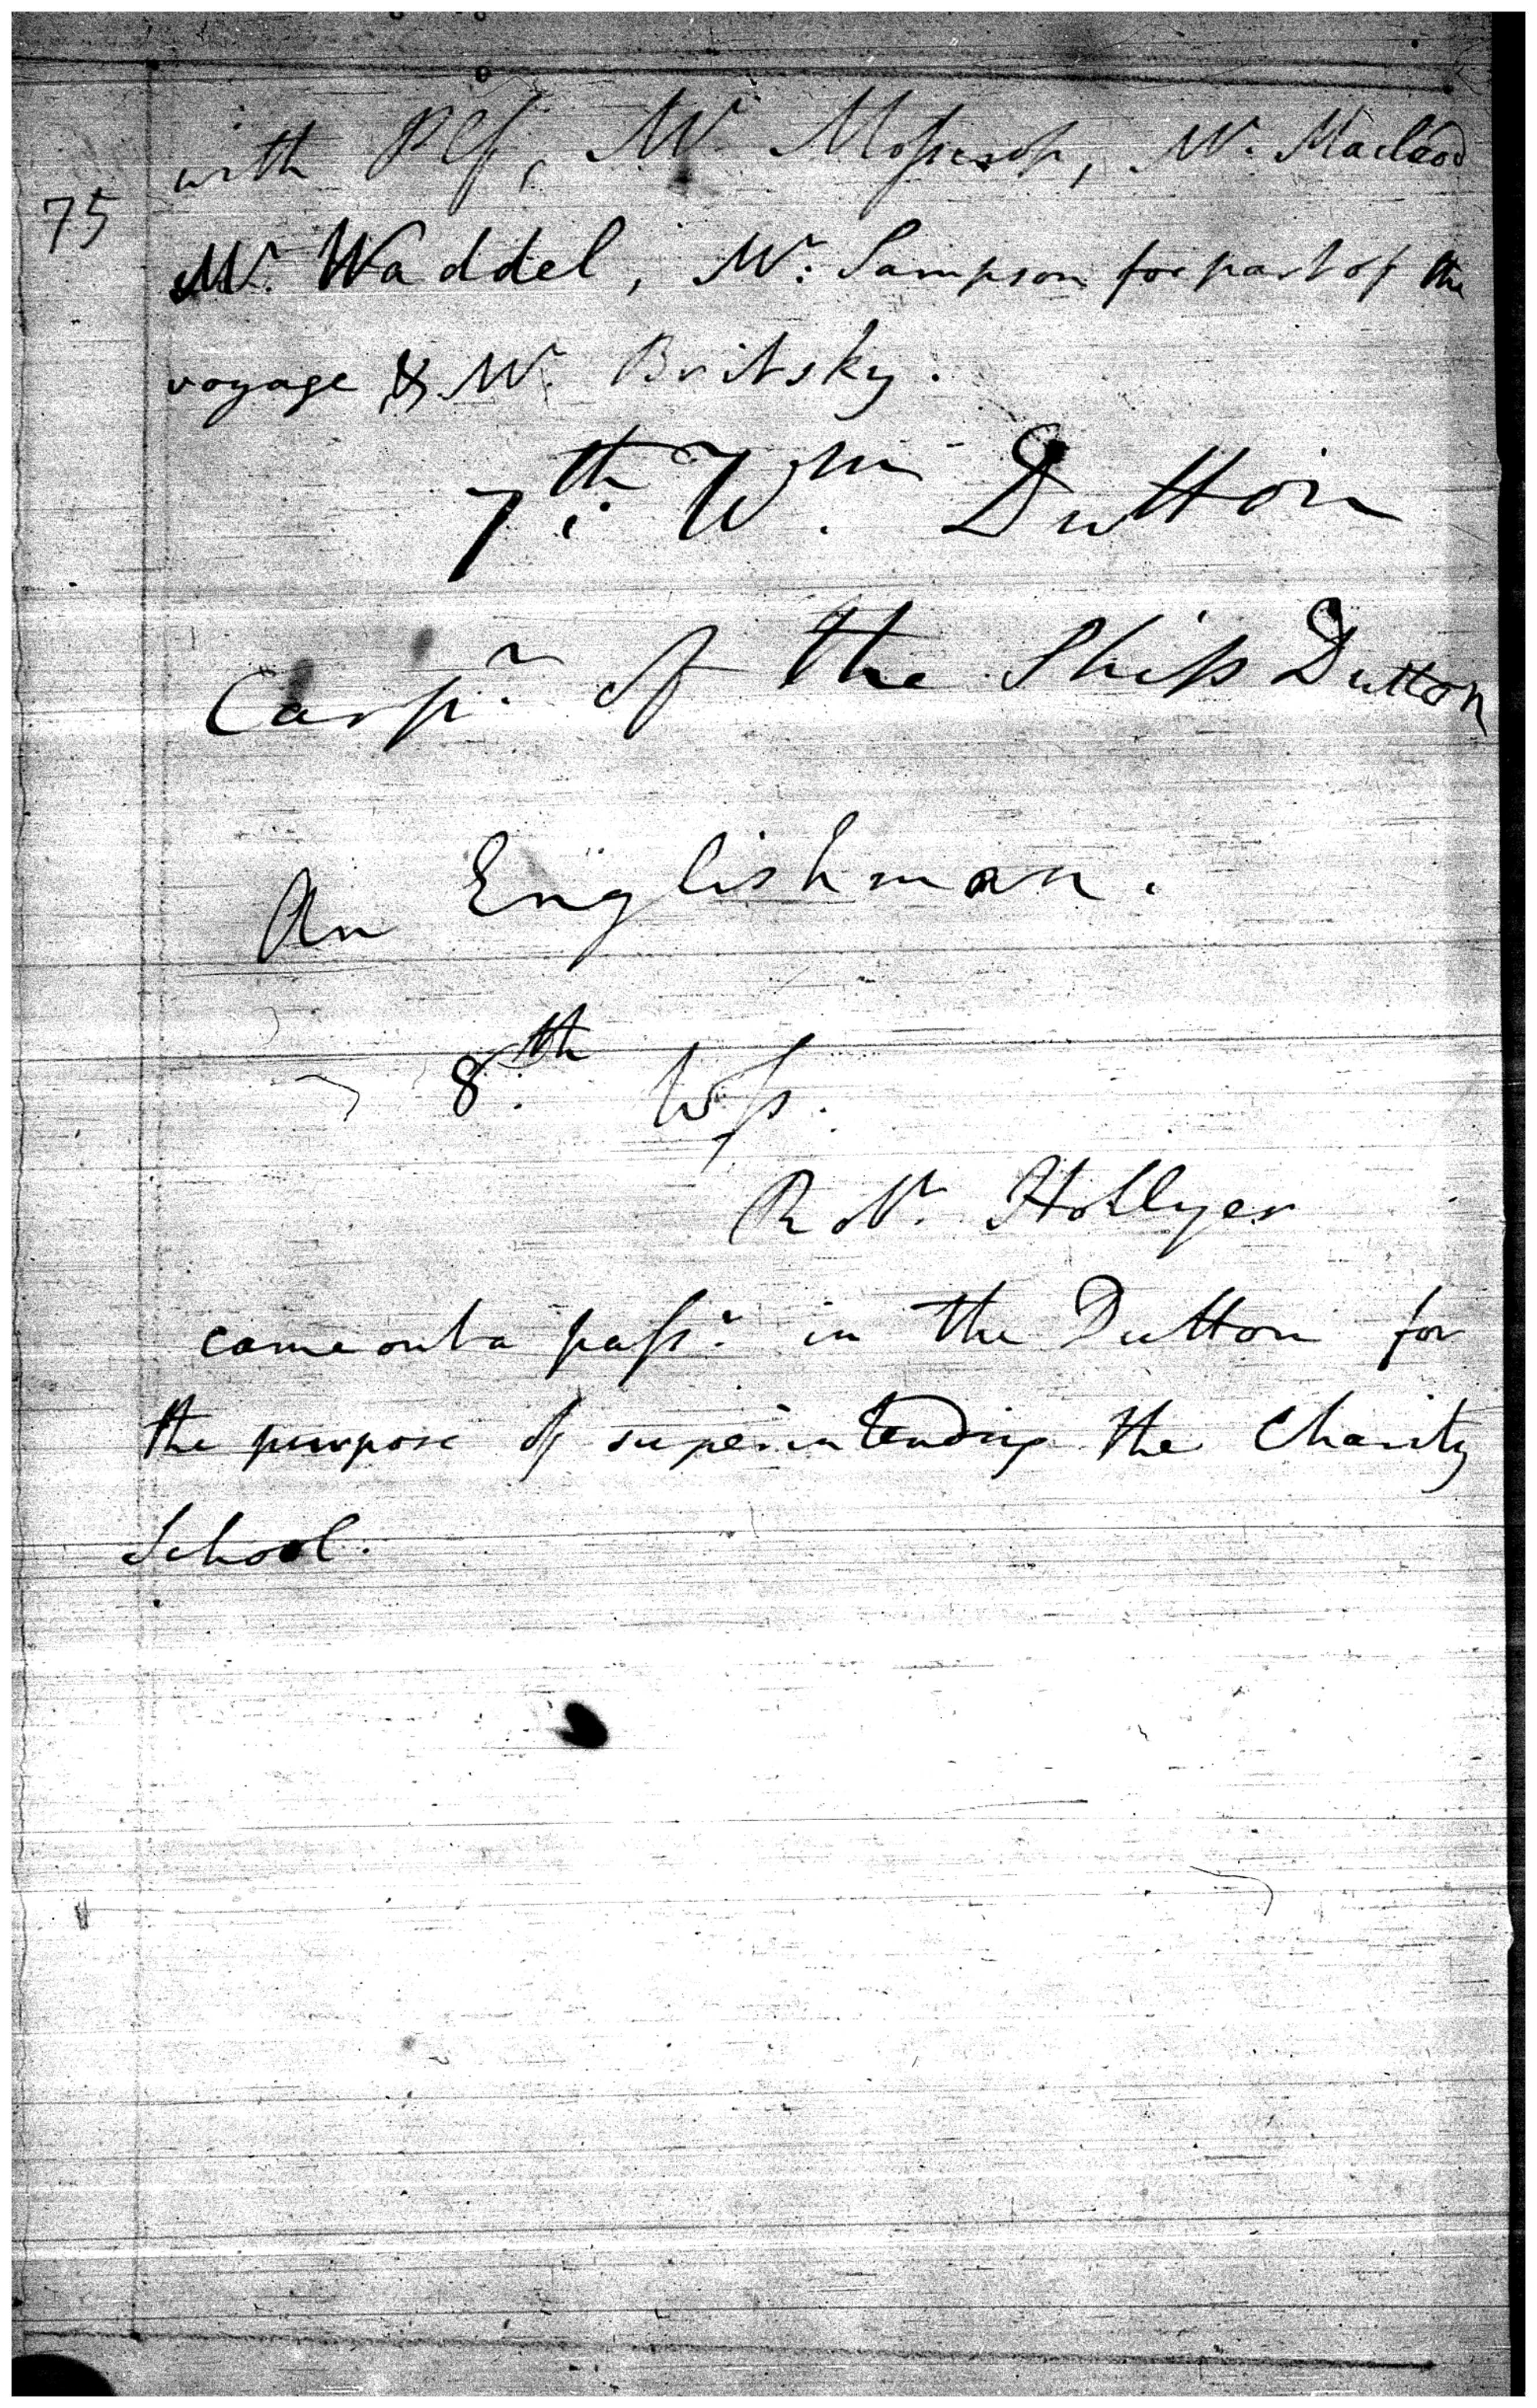 with Plf, Mr. Mossop, Mr. Macleod
75
Mr. Waddel, Mr. Sampson for part of the
voyage & Mr. Britsky.
7th. Wm. Dutton
Carpr. of the Ship Dutton
An Englishman.
8th. Wss.
Robt. Hollyer
came out a passr. in the Dutton for
the purpose of superintending the Charity
School.